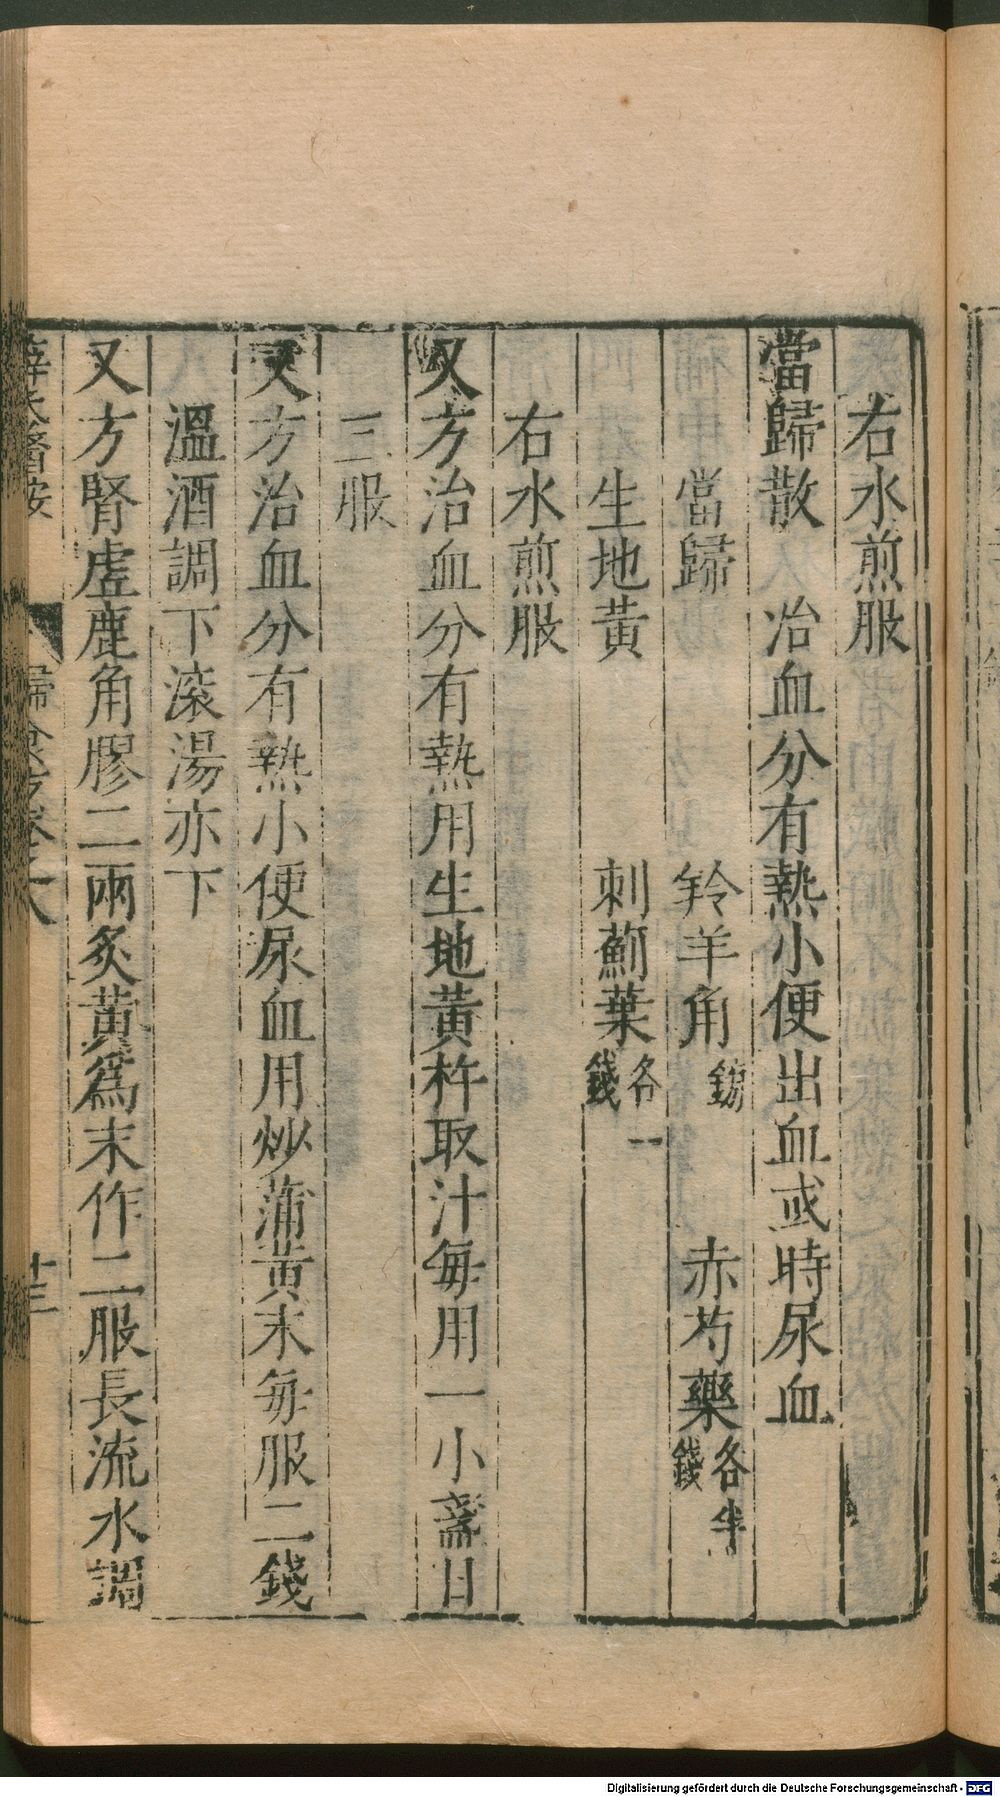 右水煎服
當歸散　治血分有熱小便出血或時尿血
當歸　羚羊角鎊　赤芍藥各半錢
生地黄　刺薊葉各一錢
右水煎服
又方治血分有熱用生地黄杵取汁每用一小盞日
三服
又方治血分有熱小便尿血用炒蒲黄末每服二錢
溫酒調下滚湯亦下
又方腎虛鹿角膠二兩炙黄爲末作二服長流水調
薛氏醫按　婦人良方卷之八　十三
Digitalisierung gefördert durch die Deutsche Forschungsgemeinschaft - DFG